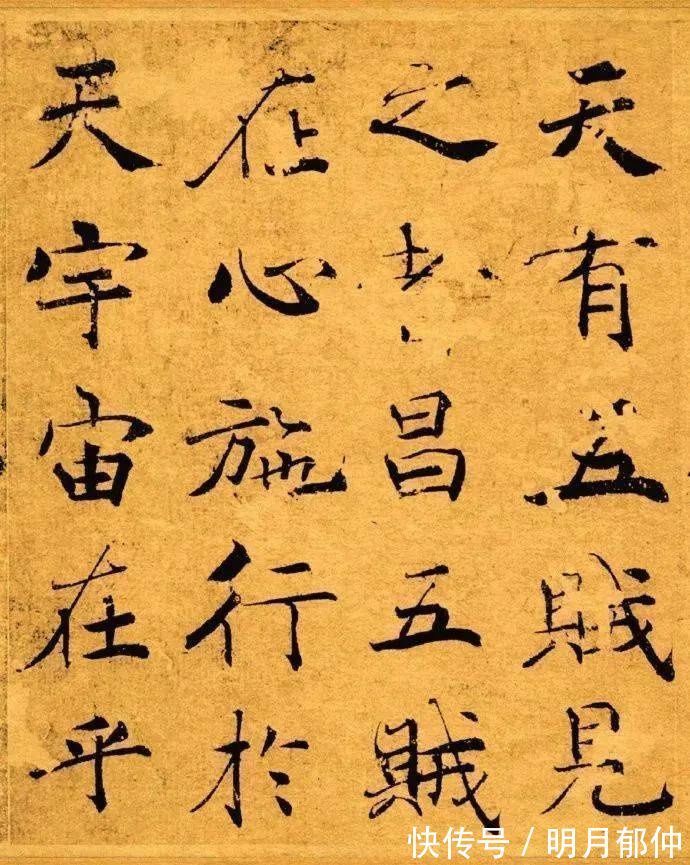 天有五賊見
之者昌五賊
在心施行於
天宇宙在乎
快传号 / 明月郁仲